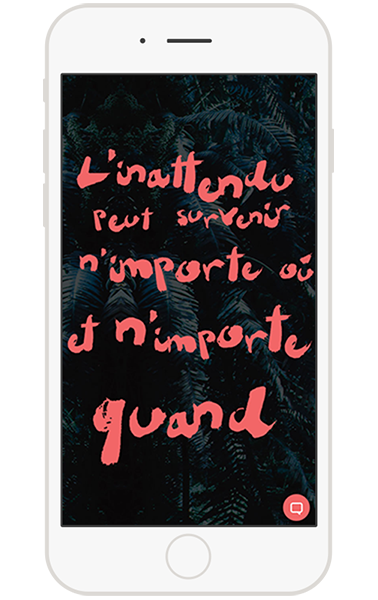 L'inattendu
peut survenir
n'importe où
et n'importe
quand